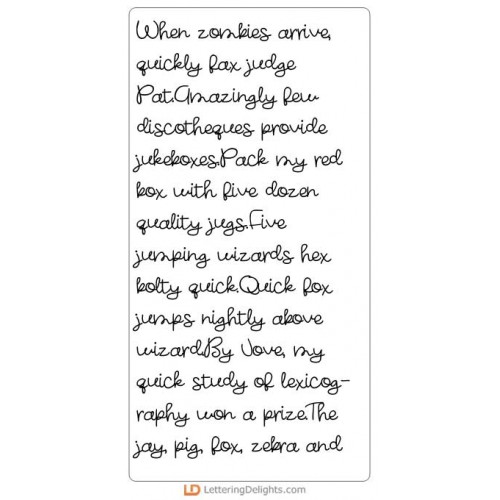 When zombies arrive,
quickly fax judge
Pat.Amazingly few
discotheques provide
jukeboxes.Pack my red
box with five dozen
quality jugs.Five
jumping wizards hex
bolty quick.Quick fox
jumps nightly above
wizard.By Jove, my
quick study of lexicog-
raphy won a prize.The
jay, pig, fox, zebra and
LD LetteringDelights.com